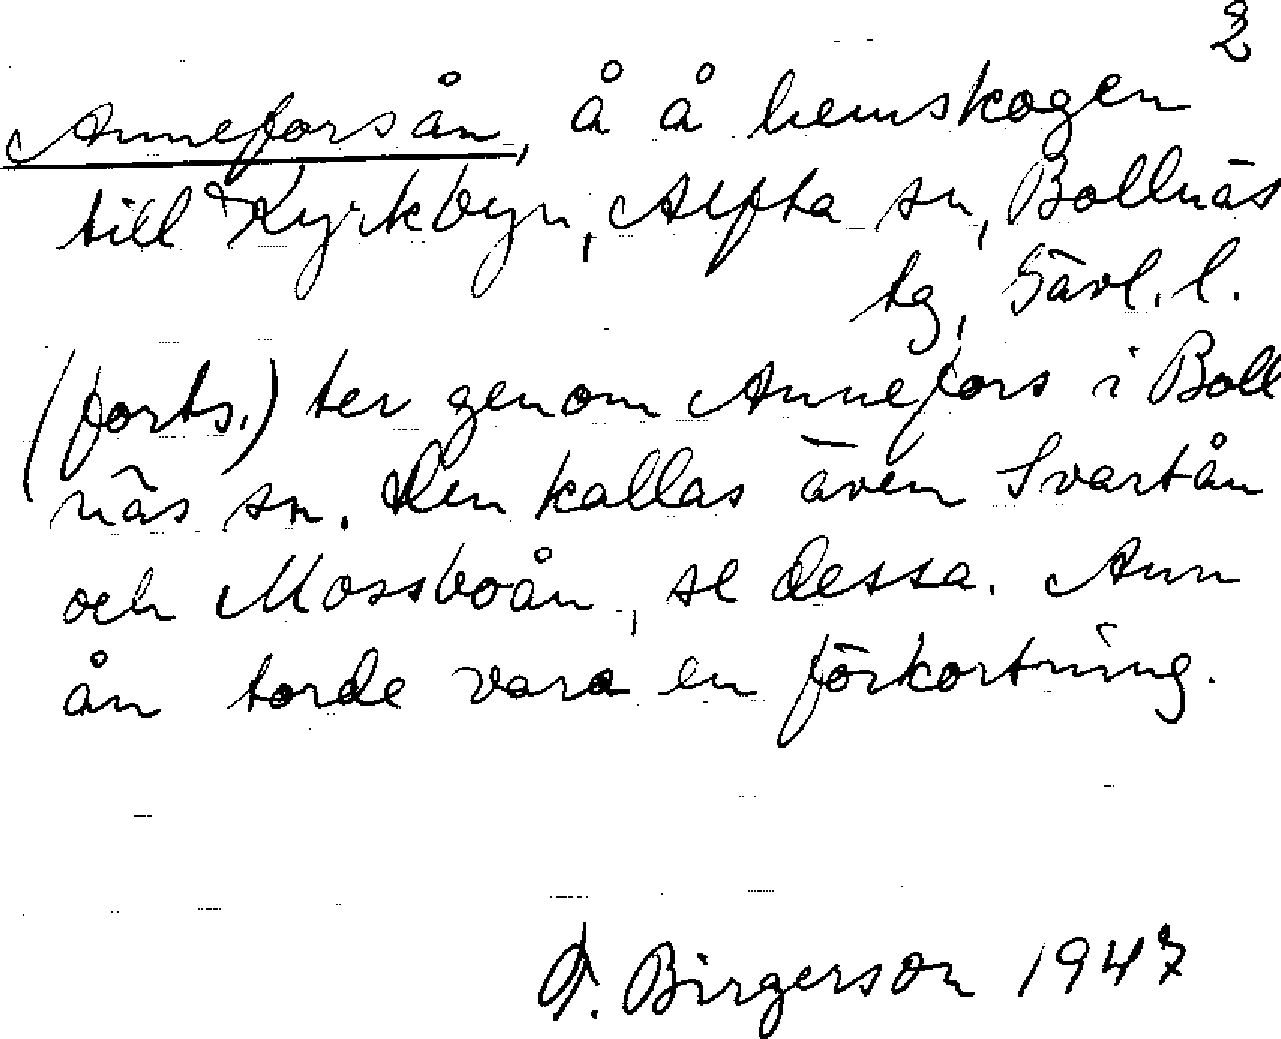 2
Anneforsån, å å hemskogen
till Kyrkbyn, Alfta sn, Bollnäs
tg, Gävl. l.
(forts.) ter genom Annefors i Boll
näs sn. Den kallas även Svartån
och Mossboån, se dessa. Ann
ån torde vara en förkortning.
F. Birgerson 1947